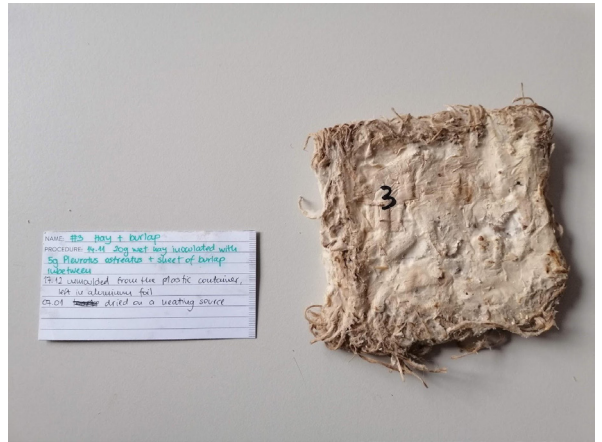 NAME: #3 Hay + burlap
PROCEDURE: 14.11 20g wet hay inoculated with
5g Pleurotus ostreatus + sheet of burlap
inbetween
17.12 unmoulded from the plastic container,
left in aluminium foil
07.01 dried on a heating source
3